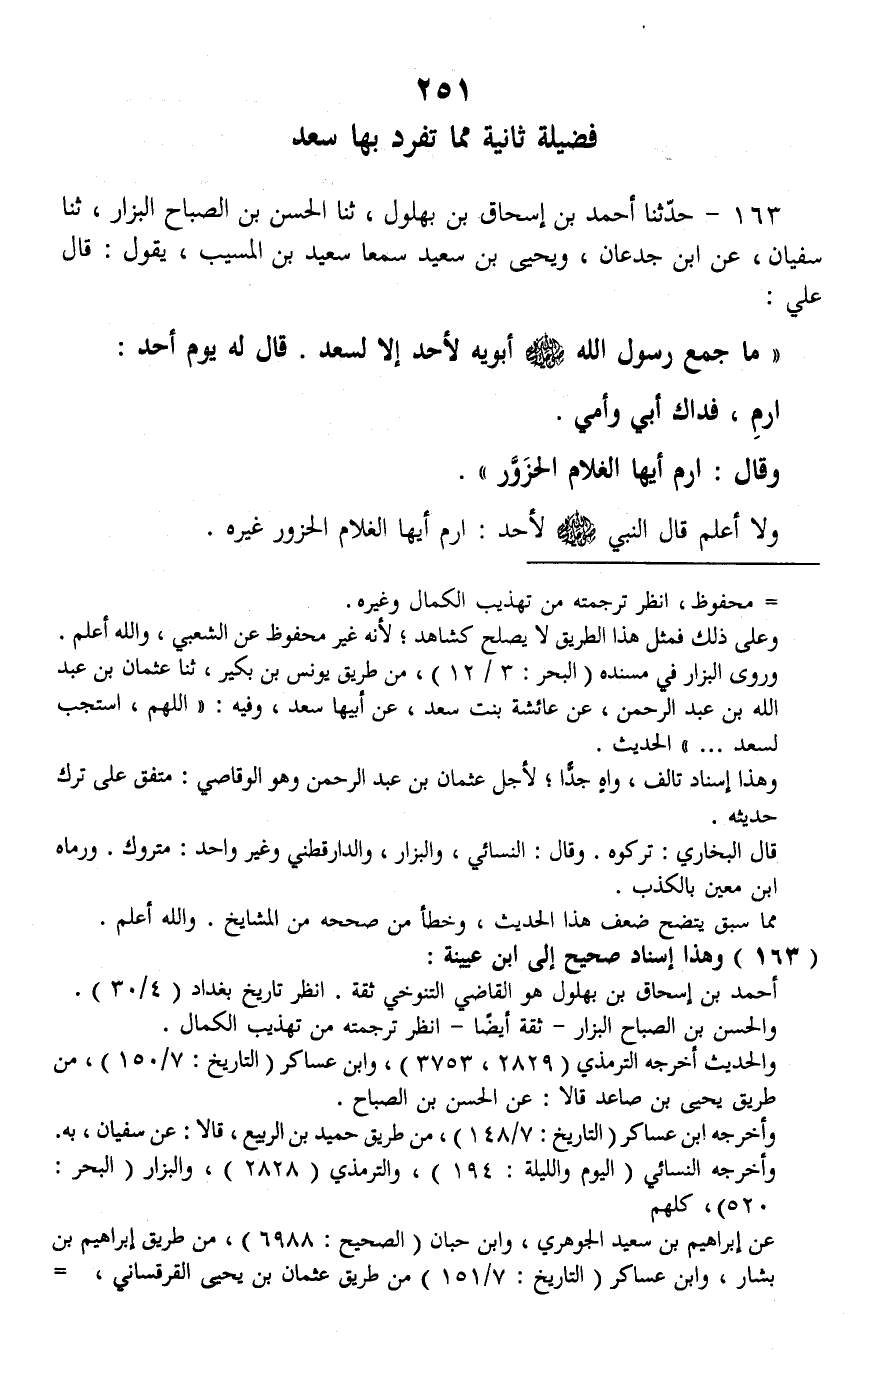 ٢٥١
فضيلة ثانية مما تفرد بها سعد
١٦٣ - حدّثنا أحمد بن إسحاق بن بهلول ، ثنا الحسن بن الصباح البزار ، ثنا
سفيان ، عن ابن جدعان ، ويحيى بن سعيد سمعا سعيد بن المسيب ، يقول : قال
علي :
« ما جمع رسول الله ﷺ أبويه لأحد إلا لسعد . قال له يوم أحد :
ارمِ ، فداك أبي وأمي .
وقال : ارم أيها الغلام الحزَوَّر » .
ولا أعلم قال النبي ﷺ لأحد : ارم أيها الغلام الحزور غيره .
= محفوظ ، انظر ترجمته من تهذيب الكمال وغيره .
وعلى ذلك فمثل هذا الطريق لا يصلح كشاهد ؛ لأنه غير محفوظ عن الشعبي ، والله أعلم .
وروى البزار في مسنده ( البحر : ٣ / ١٢ ) ، من طريق يونس بن بكير ، ثنا عثمان بن عبد
الله بن عبد الرحمن ، عن عائشة بنت سعد ، عن أبيها سعد ، وفيه : « اللهم ، استجب
لسعد ... » الحديث .
وهذا إسناد تالف ، واهٍ جدًّا ؛ لأجل عثمان بن عبد الرحمن وهو الوقاصي : متفق على ترك
حديثه .
قال البخاري : تركوه . وقال : النسائي ، والبزار ، والدارقطني وغير واحد : متروك . ورماه
ابن معين بالكذب .
مما سبق يتضح ضعف هذا الحديث ، وخطأ من صححه من المشايخ . والله أعلم .
( ١٦٣ ) وهذا إسناد صحيح إلى ابن عيينة :
أحمد بن إسحاق بن بهلول هو القاضي التنوخي ثقة . انظر تاريخ بغداد ( ٣٠/٤ ) .
والحسن بن الصباح البزار - ثقة أيضًا - انظر ترجمته من تهذيب الكمال .
والحديث أخرجه الترمذي ( ٢٨٢٩ ، ٣٧٥٣ ) ، وابن عساكر ( التاريخ : ١٥٠/٧ ) ، من
طريق يحيى بن صاعد قالا : عن الحسن بن الصباح .
وأخرجه ابن عساكر ( التاريخ : ١٤٨/٧ ) ، من طريق حميد بن الربيع ، قالا : عن سفيان ، به.
وأخرجه النسائي ( اليوم والليلة : ١٩٤ ) ، والترمذي ( ٢٨٢٨ ) ، والبزار ( البحر :
٥٢٠) ، كلهم
عن إبراهيم بن سعيد الجوهري ، وابن حبان ( الصحيح : ٦٩٨٨ ) ، من طريق إبراهيم بن
بشار ، وابن عساكر ( التاريخ : ١٥١/٧ ) من طريق عثمان بن يحيى القرقساني ، =